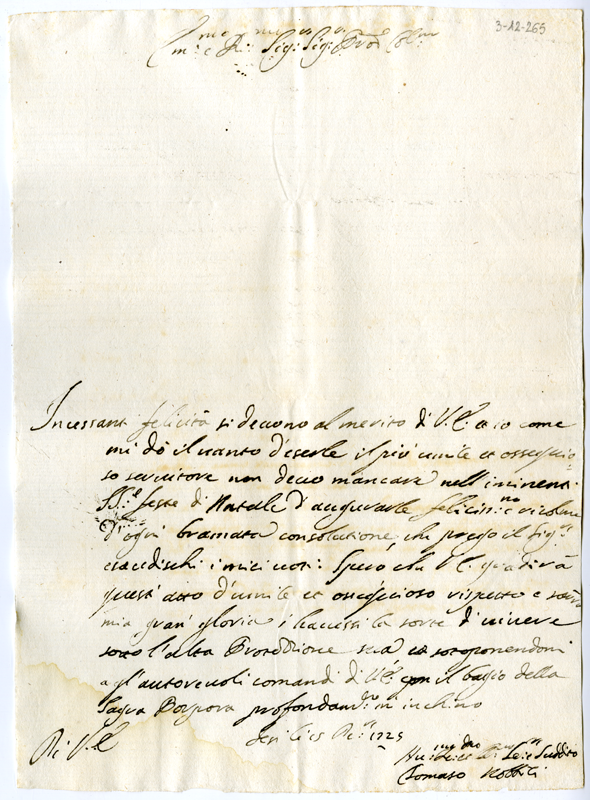 3-12-265
Em:mo e R:mo Sig: Sig: Pron Col:mo
Incessanti felicità si deuono al merito di V.E. et io come
mi dò il uanto d'eserle il più umile et ossequio
so seruitore non deuo mancare nell'iminenti
SS:e feste di Natale d'augurarle felicis:me ricolme
d'ogni bramata consolatione, che prego il Sig:re
esaudischi i miei uoti: Spero che V.E. gradirà
quest'atto d'umile et ossequioso rispetto e sarà
mia gran gloria i hauessi la sorte di uiuere
sotto l'alta Protettione sua et sotoponendomi
a gl'autoreuoli comandi di V.E. con il bagio della
Sagra Porpora profondam:te m'inchino
Di V.E.
li Xbre 1725
Hu:mo Seruitore Suddito
Tomaso Nobili